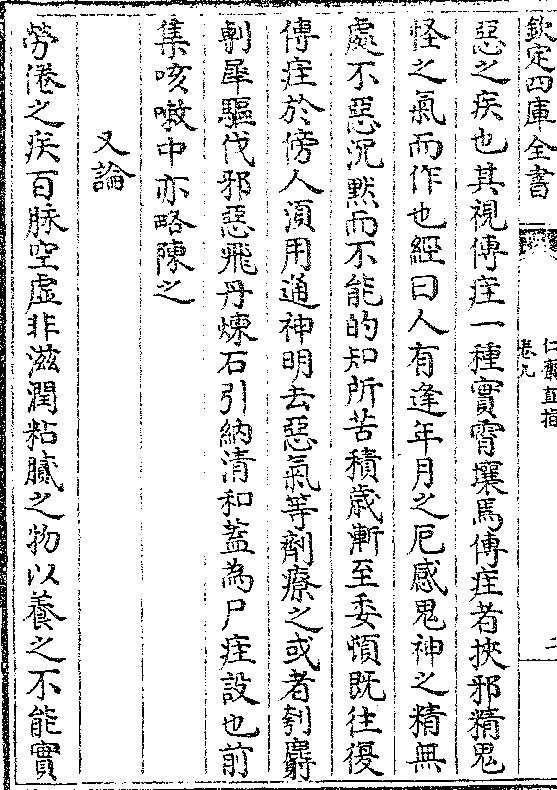 欽定四庫全書
仁齋直指
卷九
二
惡之疾也其視傳疰一種實霄壤焉傳疰者挾邪精鬼
怪之氣而作也經曰人有逢年月之厄感鬼神之精無
處不惡沉黙而不能的知所苦積歳漸至委頓既往復
傳疰於傍人須用通神明去惡氣等劑療之或者刳麝
剸犀驅伐邪惡飛丹煉石引納清和蓋為尸疰設也前
集咳嗽中亦略陳之
又論
勞倦之疾百脉空虛非滋潤粘膩之物以養之不能實